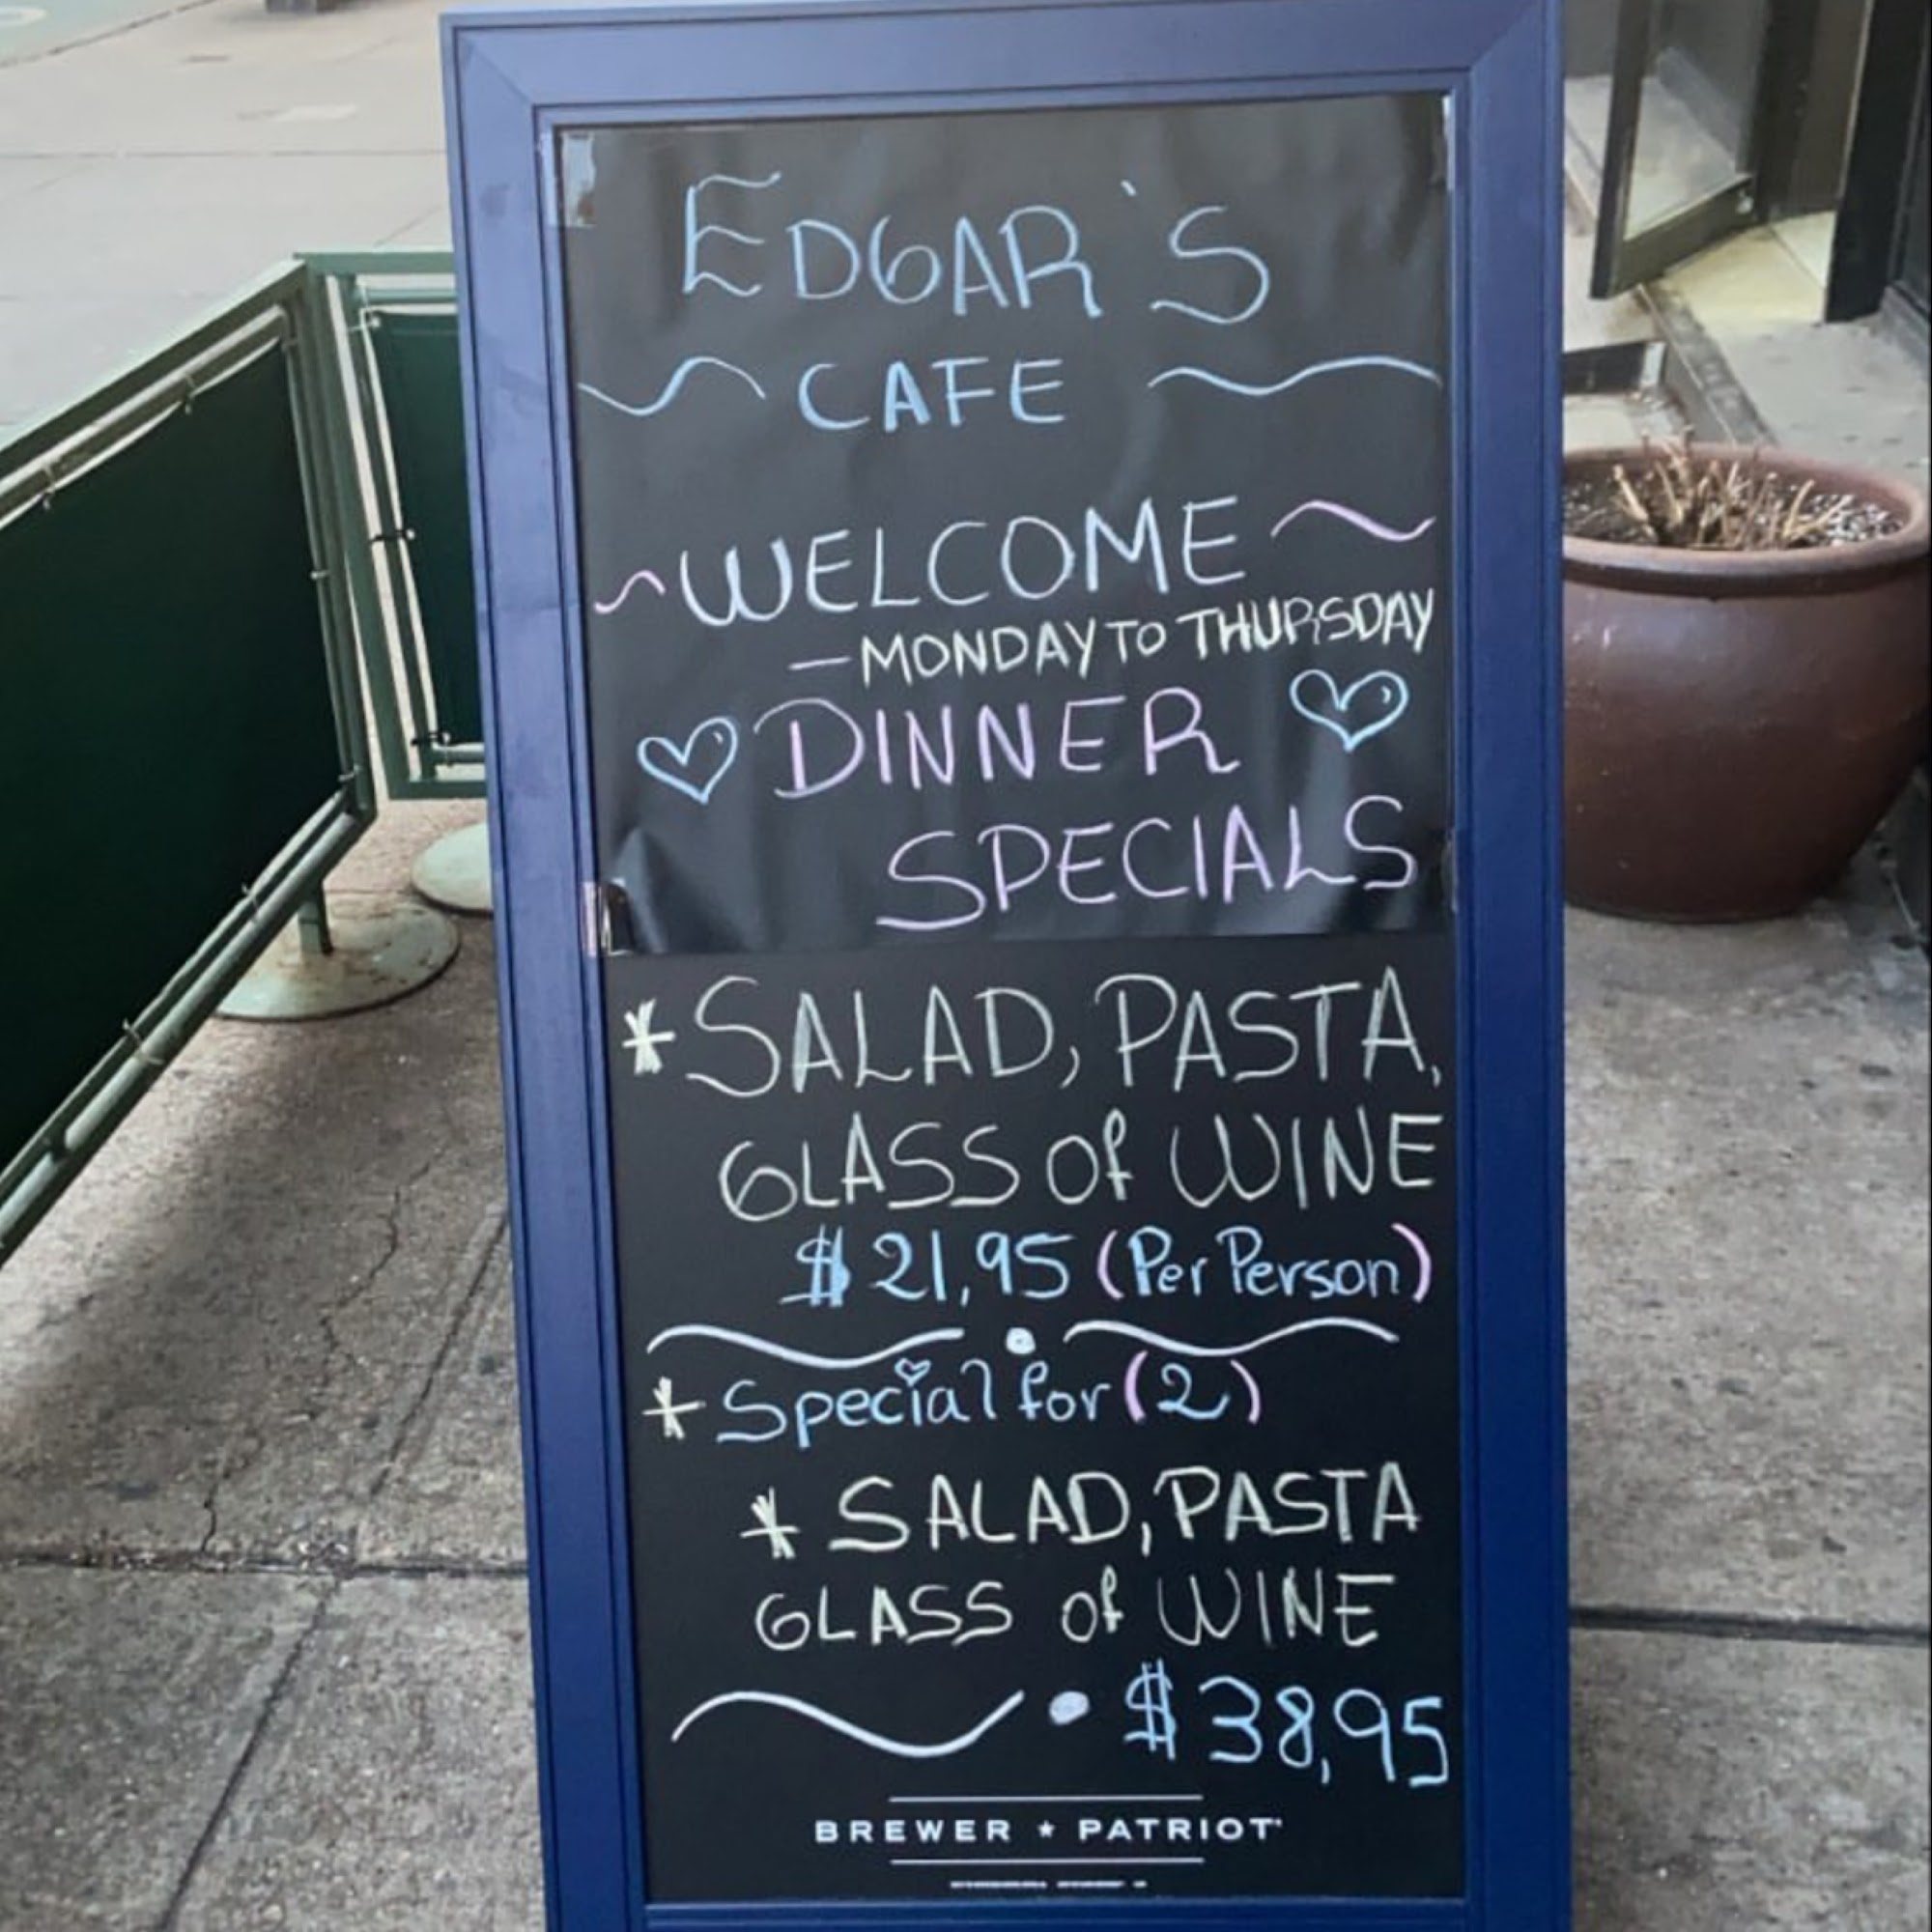 EDGAR'S
CAFE
WELCOME
—MONDAY TO THURSDAY
DINNER
SPECIALS
*SALAD, PASTA,
GLASS of WINE
$21,95 (Per Person)
*Special for (2)
* SALAD, PASTA
GLASS of WINE
$38,95
BREWER ★ PATRIOT